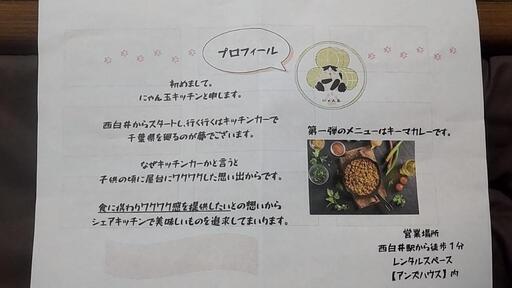 プロフィール
初めまして。
にゃん玉キッチンと申します。
西白井からスタートし、行く行くはキッチンカーで
千葉県を廻るのが夢でございます。
なぜキッチンカーかと言うと
子供の頃に屋台にワクワクした思い出からです。
食に携わりワクワク感を提供したいとの想いから
シェアキッチンで美味しいものを追求してまいります。
にゃん玉
第一弾のメニューはキーマカレーです。
営業場所
西白井駅から徒歩1分
レンタルスペース
【アンズハウス】内